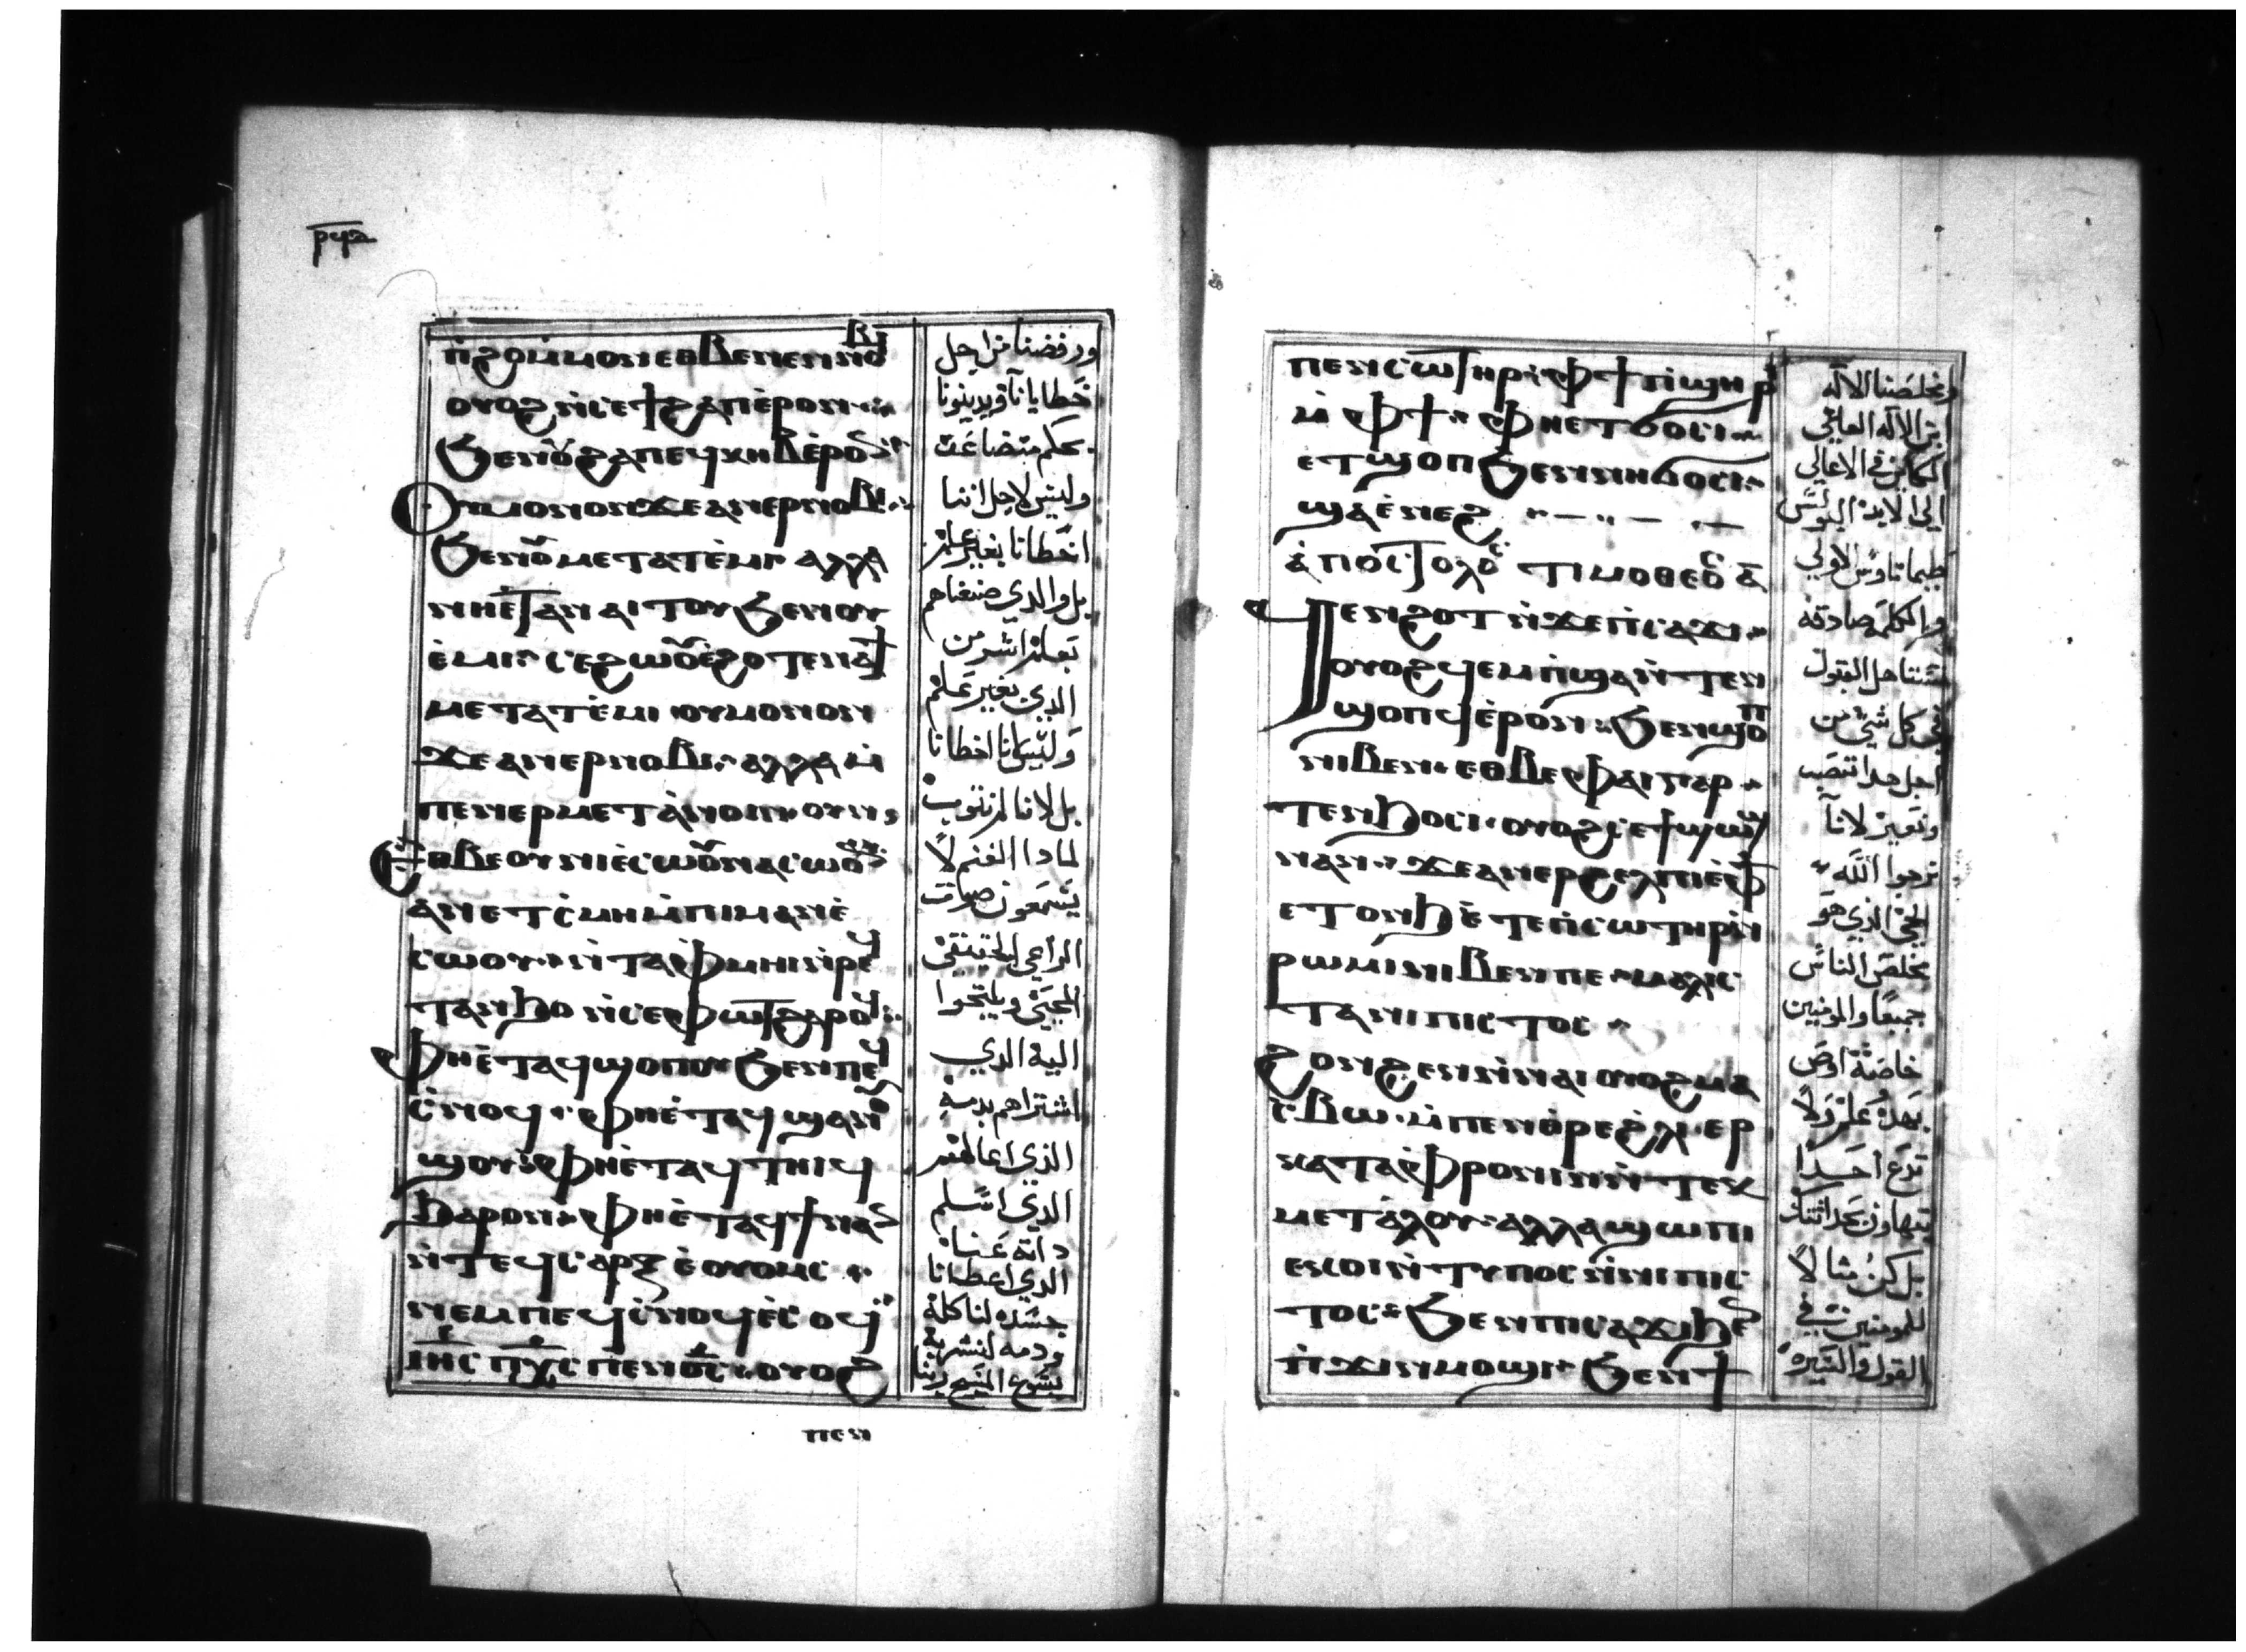 ⲣϥⲍ
ⲛ̀ϩⲟⲙ̀ⲙⲟⲛ ⲉⲑⲃⲉ ⲛⲉⲛⲛⲟⲃⲓ
ⲟⲩⲟϩ ⲛ̀ⲥⲉϯϩⲁⲡ ⲉ̀ⲣⲟⲛ
ϧⲉⲛⲟⲩϩⲁⲡ ⲉϥⲕⲏⲃ ⲉ̀ⲣⲟϥ
ⲟⲩⲙⲟⲛⲟⲛ ϫⲉ ⲁⲛⲉⲣⲛⲟⲃⲓ
ϧⲉⲛⲟⲩⲙⲉⲧⲁⲧⲉ̀ⲙⲓ ⲁⲗⲗⲁ
ⲛⲏⲉⲧⲁⲛⲁⲓⲧⲟⲩ ϧⲉⲛⲟⲩ
ⲉ̀ⲙⲓ ⲥⲉϩⲱⲟⲩ ⲉ̀ϩⲟⲧⲉ ⲛⲁϯ
ⲙⲉⲧⲁⲧⲉ̀ⲙⲓ ⲟⲩⲙⲟⲛⲟⲛ
ϫⲉ ⲁⲛⲉⲣⲛⲟⲃⲓ ⲁⲗⲗⲁ ⲙ̀
ⲡⲉⲛⲉⲣⲙⲉⲧⲁⲛⲟⲓⲛ ⲟⲩⲛ
ⲉⲑⲃⲉⲟⲩ ⲛⲓⲉ̀ⲥⲱⲟⲩ ⲛⲁⲥⲱⲧⲉⲙ
ⲁⲛ ⲉⲧⲥ̀ⲙⲏ ⲙ̀ⲡⲓⲙⲁⲛⲉ̀
ⲥⲱⲟⲩ ⲛ̀ⲧⲁⲫ̀ⲙⲏⲓ ⲛ̀ⲣⲉϥ
ⲧⲁⲛϧⲟ ⲛ̀ⲥⲉⲫⲱⲧ ϩⲁⲣⲟϥ
ⲫⲏⲉ̀ⲧⲁϥϣⲟⲡⲟⲩ ϧⲉⲛⲡⲉϥ
ⲥ̀ⲛⲟϥ ⲫⲏⲉ̀ⲧⲁϥϣⲁⲛⲟⲩ
ϣⲟⲩ ⲫⲏⲉ̀ⲧⲁϥⲧⲏⲓϥ
ϧⲁⲣⲟⲛ ⲫⲏⲉ̀ⲧⲁϥϯ ⲛⲁⲛ
ⲛ̀ⲧⲉϥⲥⲁⲣⲝ ⲉ̀ⲟⲩⲟⲙⲥ
ⲛⲉⲙ ⲡⲉϥⲥ̀ⲛⲟϥ ⲉ̀ⲥⲟϥ
ⲓⲏⲥ ⲡⲭⲥ ⲡⲉⲛⲟⲥ ⲟⲩⲟϩ
ⲡⲉⲛ
ورفضنا من اجل
خطايانا ويدينونا
بحكم متضاعف
وليس لاجل اننا
اخطانا بغير علم
بل والدي صنعناهم
بعلم اشر من
الدي بغير علم
وليس انا اخطانا
بل لانا لم نتوب
لمادا الغنم لا
يسمعون صوت
الراعي الحقيقي
المحيي ويلتجوا
اليه الدي
اشتراهم بدمه
الذي اعالهم
الدي اسلم
داته عنا
الدي اعطانا
جسده لناكله
ودمه لنشربه
يسوع المسيح ربنا
ⲡⲉⲛⲥⲱⲧⲏⲣ ⲫϯ ⲡ̀ϣⲏⲣⲓ
ⲙ̀ⲫϯ ⲫⲏⲉⲧϭⲟⲥⲓ
ⲉⲧϣⲟⲡ ϧⲉⲛⲛⲏⲉⲧϭⲟⲥⲓ
ϣⲁⲉ̀ⲛⲉϩ
ⲁ̀ⲡⲟⲥⲧⲟⲗⲟⲥ ⲧⲓⲙⲟⲑⲉⲟⲥ ⲁ̅
ϥⲉⲛϩⲟⲧ ⲛ̀ϫⲉ ⲡ̀ⲥⲁϫⲓ
ⲟⲩⲟϩ ϥⲉⲙⲡ̀ϣⲁ ⲛ̀ⲧⲉⲛ
ϣⲟⲡϥ ⲉ̀ⲣⲟⲛ ϧⲉⲛϣⲱⲡ
ⲛⲓⲃⲉⲛ ⲉⲑⲃⲉⲫⲁⲓ ⲅⲁⲣ
ⲧⲉⲛϧⲟⲥⲓ ⲟⲩⲟϩ ⲥⲉϯϣⲱϣ
ⲛⲁⲛ ϫⲉ ⲁⲛⲉⲣϩⲉⲗⲡⲓⲥ ⲉ̀ⲫϯ
ⲉⲧⲟⲛϧ ⲉ̀ⲧⲉ ⲡ̀ⲥⲱⲧⲏⲣ ⲛ̀
ⲣⲱⲙⲓ ⲛⲓⲃⲉⲛ ⲡⲉ ⲙⲁⲗⲓⲥ
ⲧⲁ ⲛⲓⲡⲓⲥⲧⲟⲥ
ϩⲟⲛϩⲉⲛ ⲛ̀ⲛⲁⲓ ⲟⲩⲟϩ ⲙⲁ
ⲥ̀ⲃⲱ ⲙ̀ⲡⲉⲛⲑⲣⲉϩ̀ⲗⲓ ⲉⲣ
ⲕⲁⲧⲁⲫⲣⲟⲛⲓⲛ ⲛ̀ⲧⲉⲕ
ⲙⲉⲧⲁ̀ⲗⲟⲩ ⲁⲗⲗⲁ ϣⲱⲡⲓ
ⲉⲕⲟⲓ ⲛ̀ⲧⲩⲡⲟⲥ ⲛ̀ⲛⲓⲡⲓⲥ
ⲧⲟⲥ ϧⲉⲛⲡⲓⲥⲁϫⲓ ϧⲉⲛ
ⲡ̀ϫⲓⲛⲙⲟϣⲓ ϧⲉⲛϯ
ومخلصنا الاله
ابن الاله العالي
الكاين في الاعالي
الى الابد البولس
طيماتاوس الاولي
والكلمة صادقة
مستاهل القبول
في كل شي من
اجل هدا نتعب
ونعير لانا
نرجوا الله
الحي الذي هو
مخلص الناس
جميعا والمومنين
خاصة اوص
بهده علم ولا
تدع احدا
يتهاون بحداثتك
بل كن مثالا
للمومنين في
القول والسيره